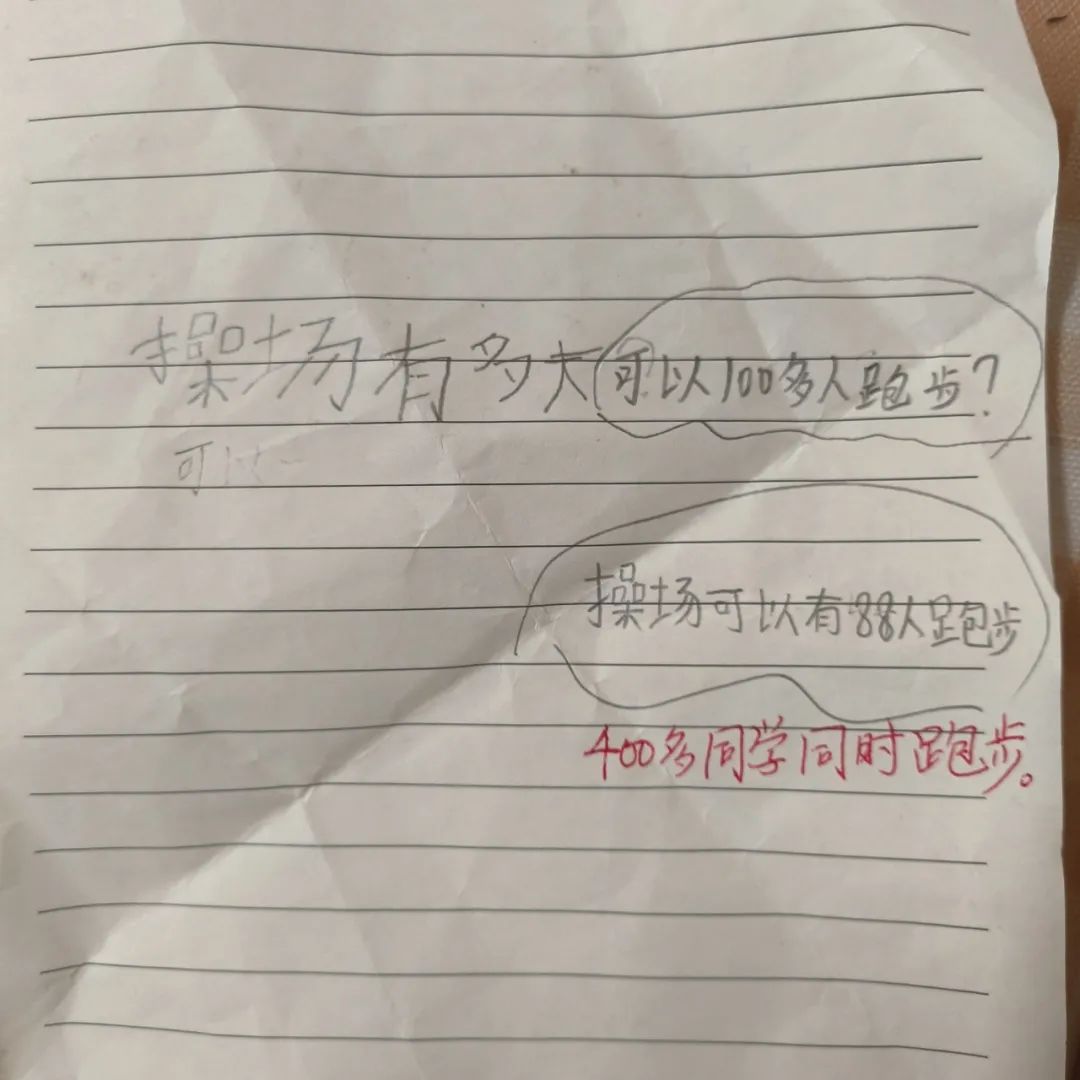 操场有多大可以100多人跑步？
可以一
操场可以有88人跑步
400多同学同时跑步。